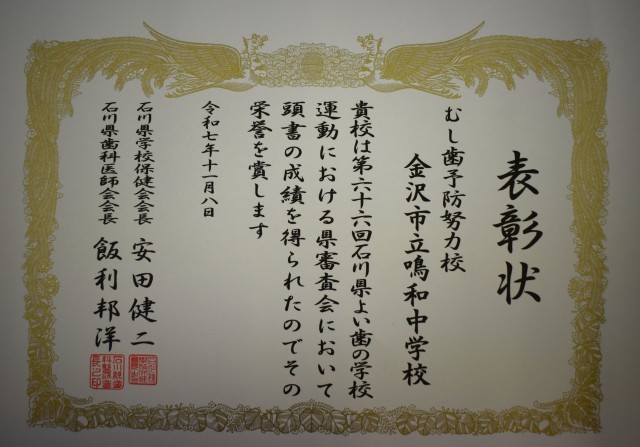 表彰状
むし歯予防努力校
金沢市立鳴和中学校
貴校は第六十六回石川県よい歯の学校
運動における県審査会において
頭書の成績を得られたのでその
栄誉を賞します
令和七年十一月八日
石川県学校保健会会長 安田健二
石川県歯科医師会会長 飯利邦洋